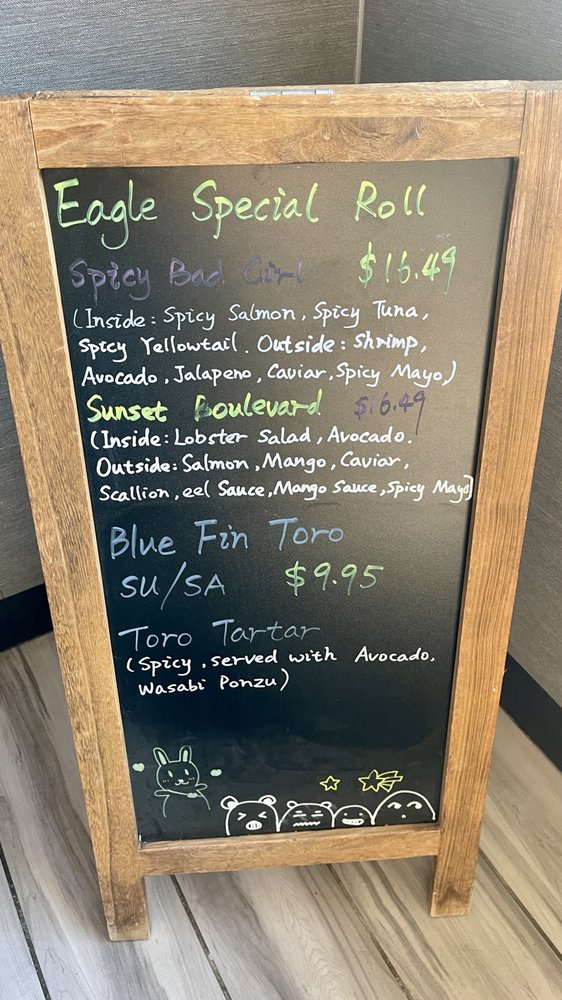 Eagle Special Roll
Spicy Bad Girl $16.49
(Inside: Spicy Salmon, Spicy Tuna,
Spicy Yellowtail. Outside: Shrimp,
Avocado, Jalapeno, Caviar, Spicy Mayo,)
Sunset Boulevard $16.49
(Inside: Lobster Salad, Avocado.
Outside: Salmon, Mango, Caviar,
Scallion, eel Sauce, Mango Sauce, Spicy Mayo)
Blue Fin Toro
SU/SA $9.95
Toro Tartar
(Spicy, served with Avocado.
Wasabi Ponzu)